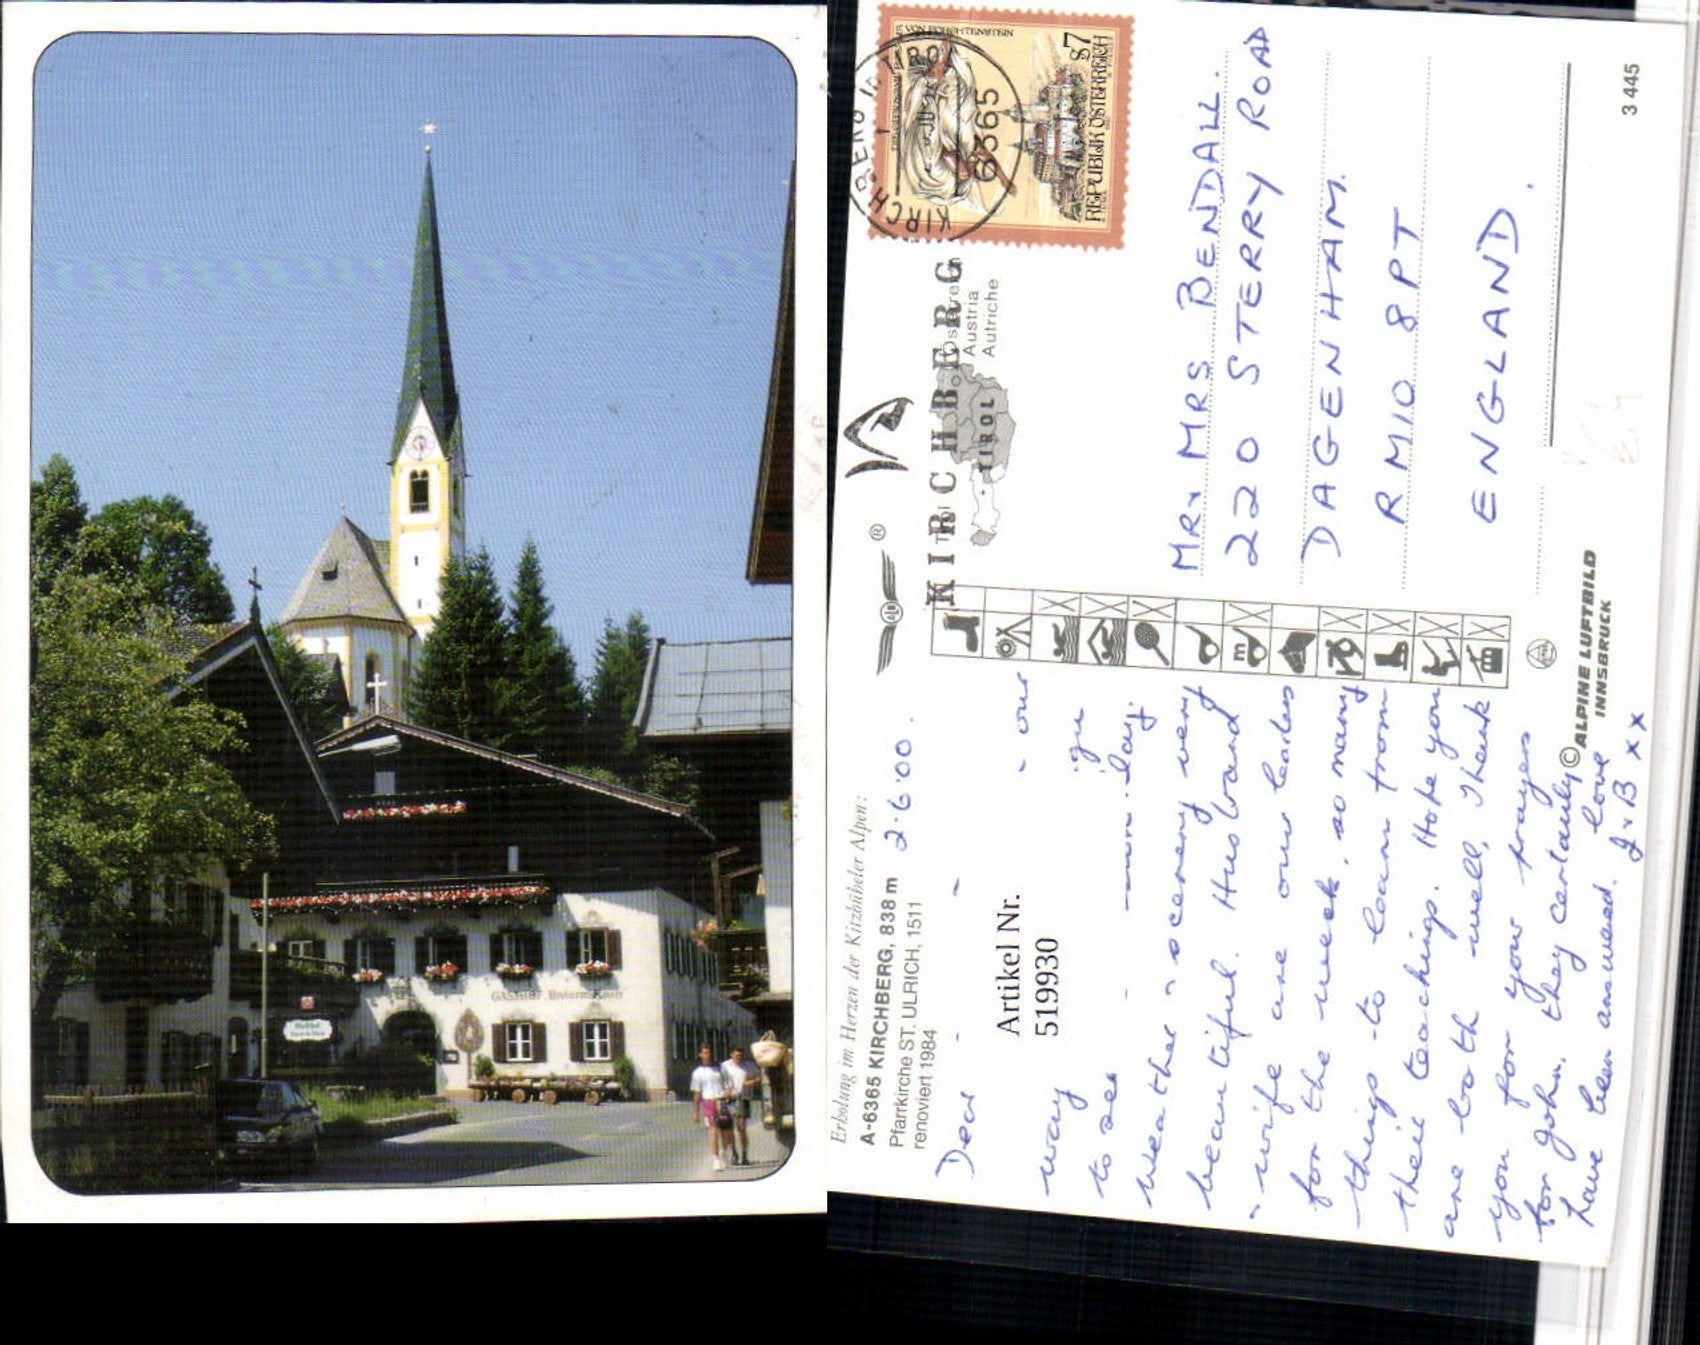 GASTHOF
Erholung im Herzen der Kitzbüheler Alpen:
A-6365 KIRCHBERG, 838 m
Pfarrkirche ST. ULRICH, 1511
renoviert 1984
2.6.00.
Dear
our
way
to see
day.
Weather & scenery very
beautiful. Husband
& wife are our leaders
for the week, so many
things to learn from
their teachings. Hope you
are both well, Thank
you for your prayers
for John. they certainly
have been answered. love
J & B x x
Artikel Nr.
519930
®
KIRCHBERG
TIROL
Austria
Autriche
KIRCHBERG IN TIROL
6365
S7
REPUBLIK ÖSTERREICH
MR & MRS BENDALL.
220 STERRY ROAD
DAGENHAM.
RM10 8PT
ENGLAND.
m
© ALPINE LUFTBILD
INNSBRUCK
3 445